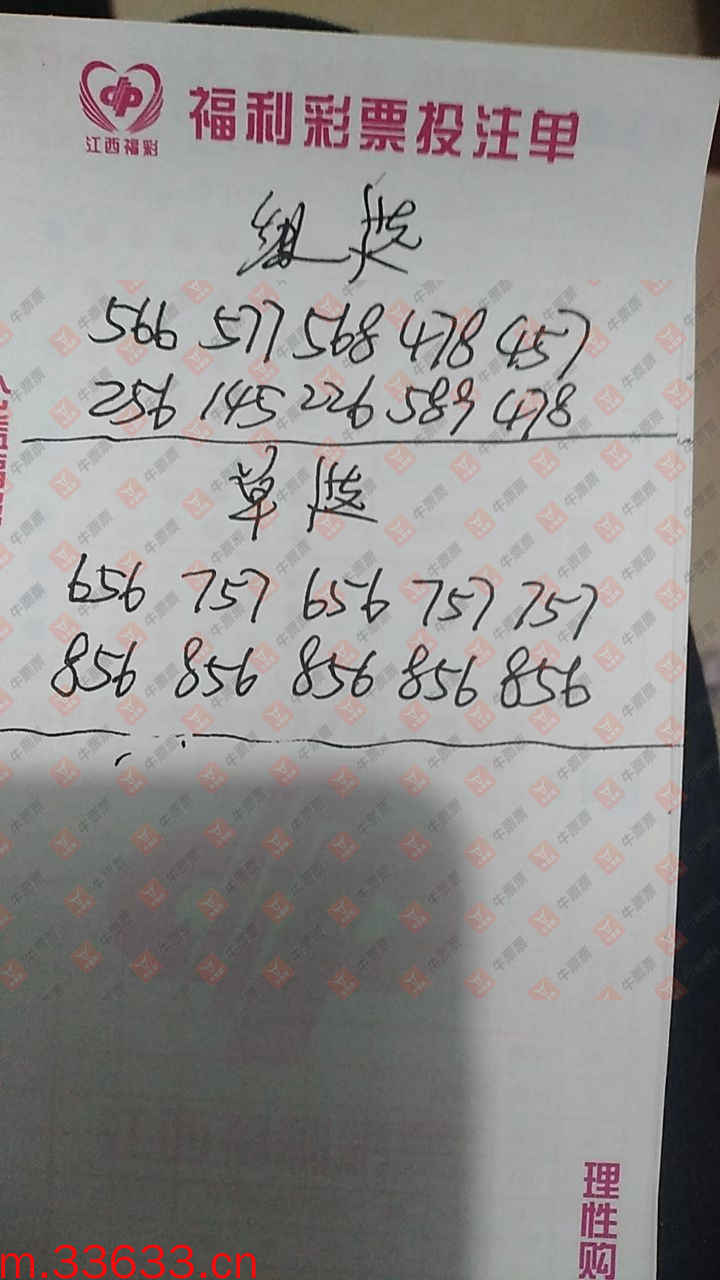 江西福彩
福利彩票投注单
组选
566 577 568 478 457
256 145 226 589 478
单选
656 757 656 757 757
856 856 856 856 856
牛票票
理性购
m.33633.cn